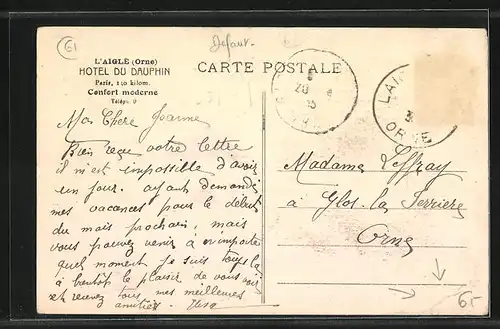 61
Defaut
L'AIGLE (Orne)
HOTEL DU DAUPHIN
Paris, 120 kilom.
Confort moderne
Téléph. 9
CARTE POSTALE
ORNE
Ma Chere Jeanne
Bien reçu votre lettre
il m'est impossible d'avoir
un jour. ayant demandé
mes vacances pour le debut
du mois prochain, mais
vous pouvez venir à n'importe
quel moment je suis
à bientot le plaisir de vous voir
et recevez tous mes meilleures
amitiés
Madame Leffray
à Glos la Ferriere
Orne
65